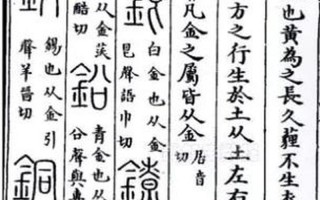 也黃為之長久薶不生
方之行生於土从土左右
凡金之屬皆从金
居音
切
銀
白金也从金
艮聲語巾切
鐐
从金
酷切
鉛
青金也从
㕣聲與
鈏
錫也从金引
聲羊晉切
銅